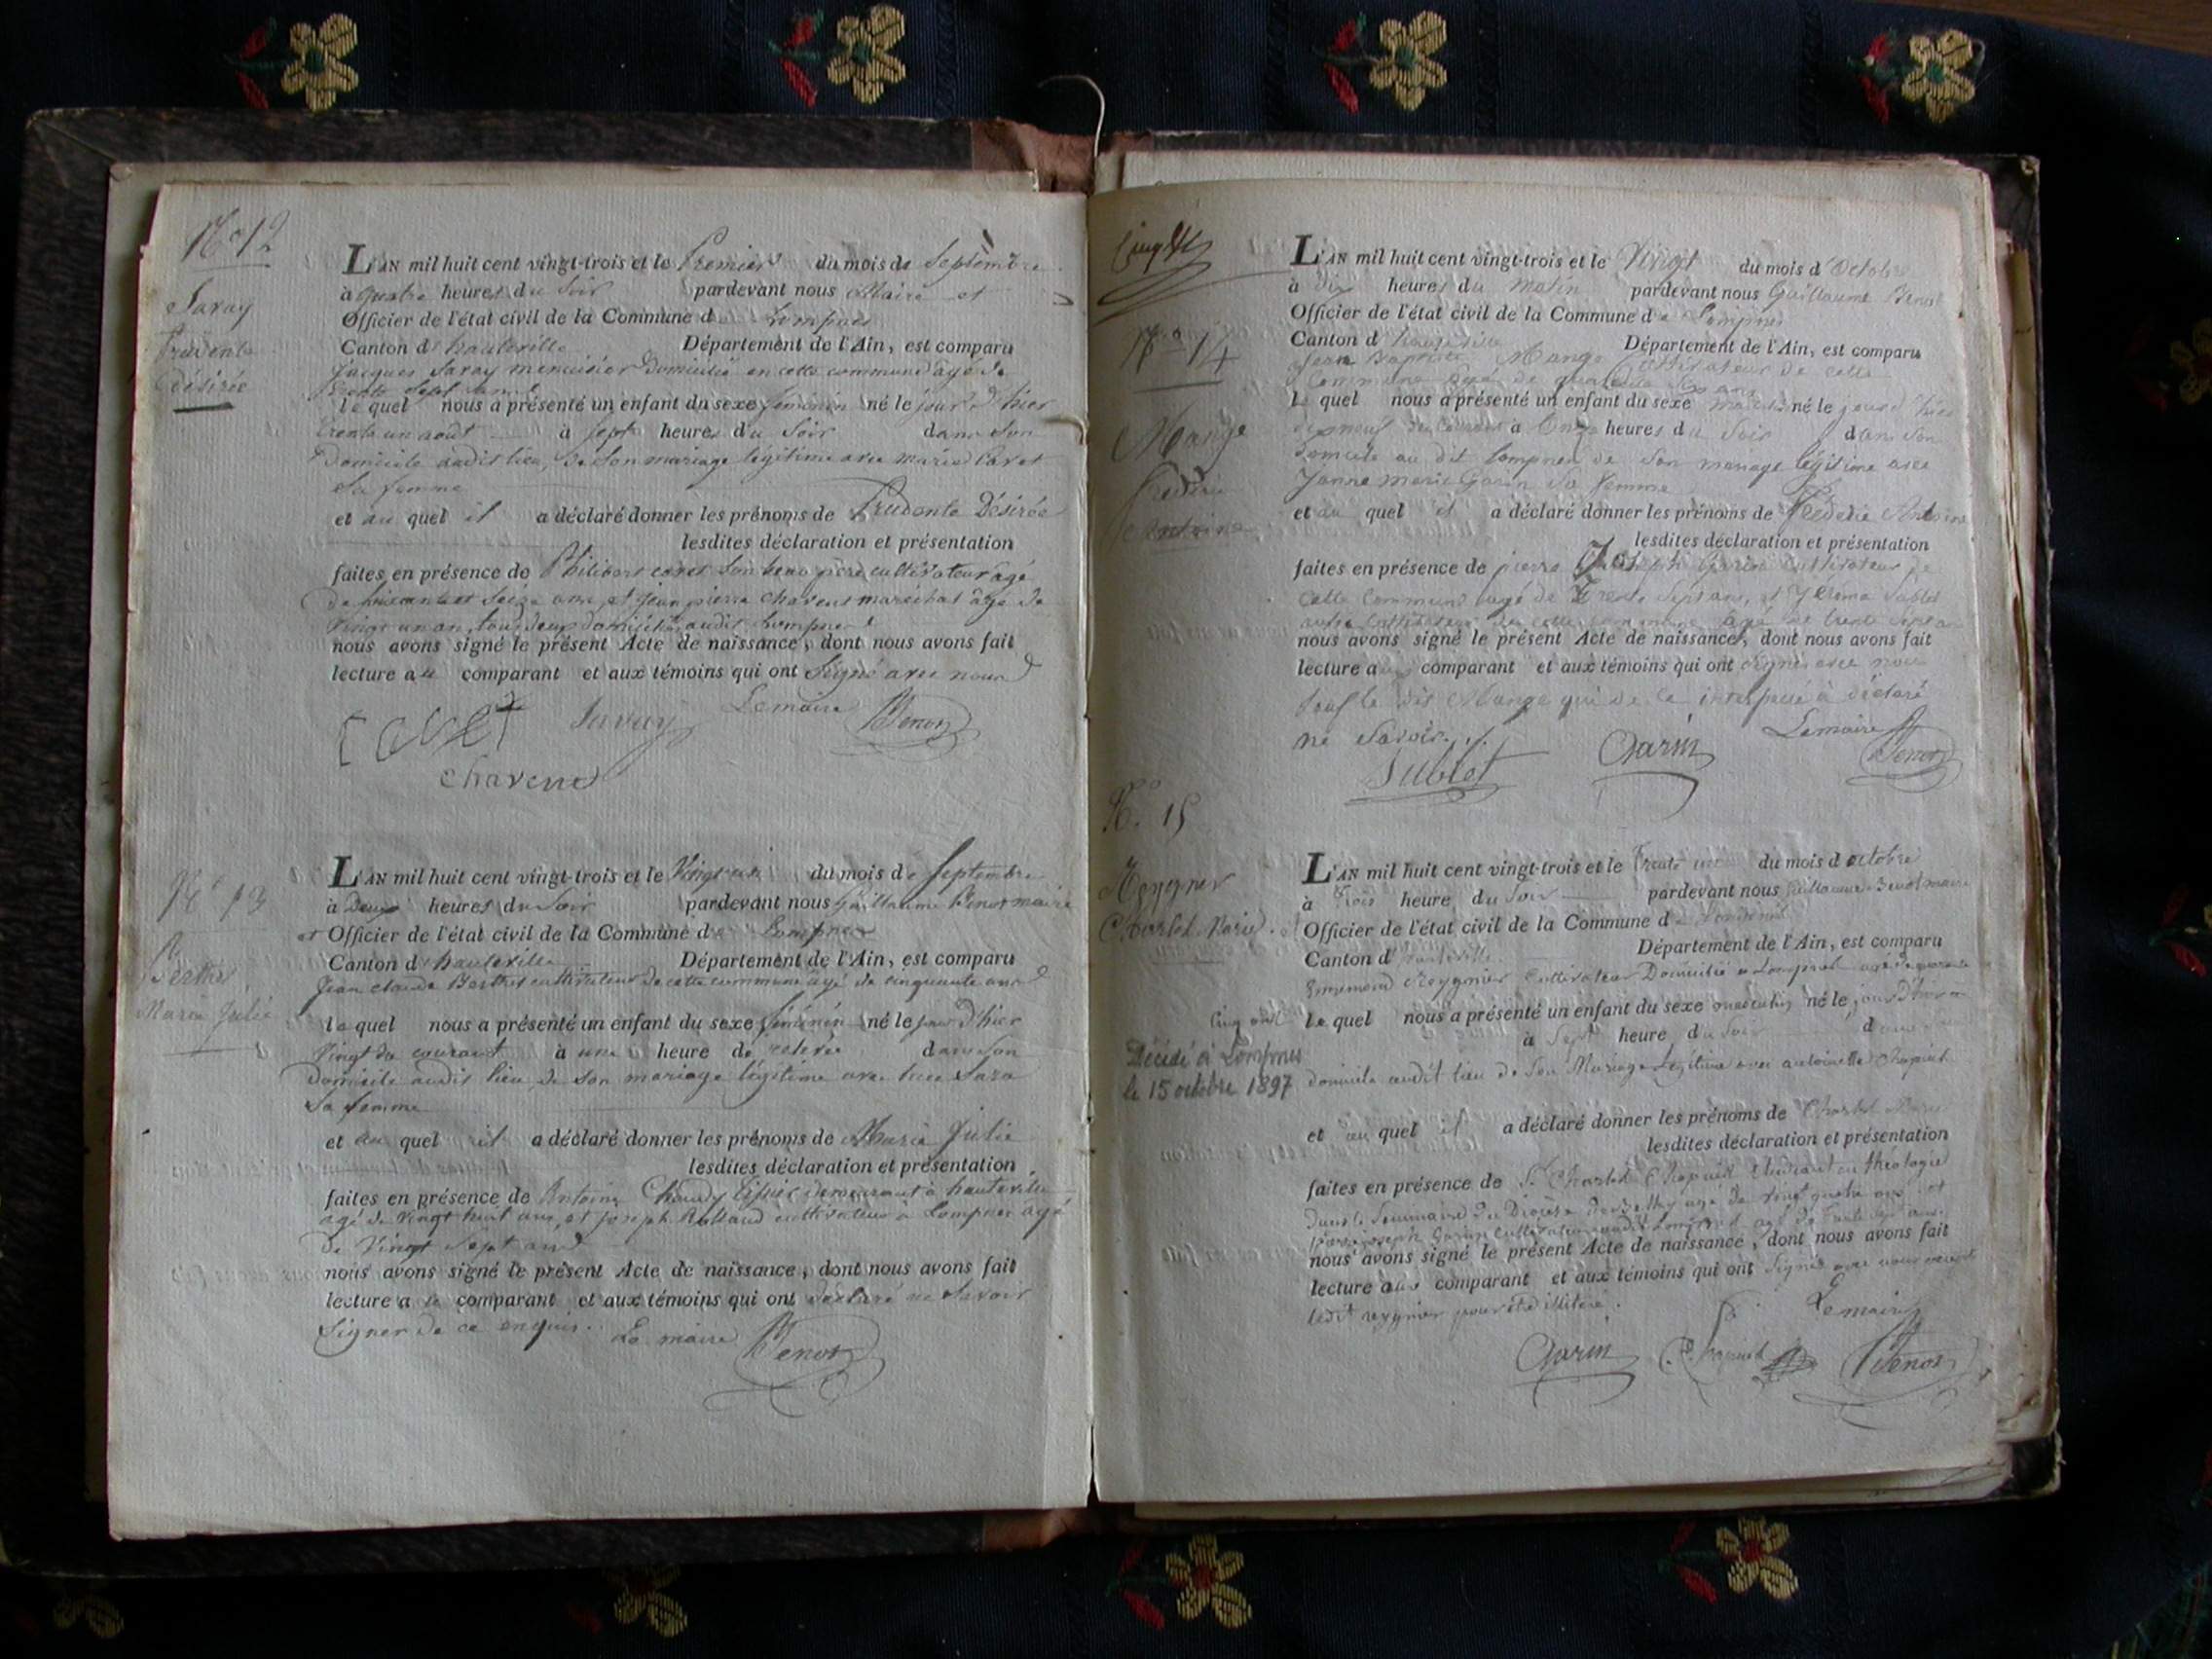 No 12
Savay
Prudente
Désirée
L'AN mil huit cent vingt-trois et le Premier du mois de Septembre
à quatre heures du Soir pardevant nous Maire et
Officier de l'état civil de la Commune de Lompnes
Canton d'hauteville Département de l'Ain, est comparu
Jacques Savay menuisier domicilié en cette commune âgé de
trente Sept ans
lequel nous a présenté un enfant du sexe féminin né le jour d'hier
trente un août à Sept heures du Soir dans Son
Domicile audit lieu, de Son mariage légitime avec marie Cavet
Sa femme
et au quel il a déclaré donner les prénoms de Prudente Désirée
lesdites déclaration et présentation
faites en présence de Philibert cavet Son beau père cultivateur âgé
de Seize ans, et Jean pierre Chavent maréchal âgé de
Vingt un an, tous deux domiciliés audit Lompnes
nous avons signé le présent Acte de naissance, dont nous avons fait
lecture au comparant et aux témoins qui ont Signé avec nous
Cavet Savay Lemaire Benoz
Chavent
No 13
Berthet
Marie Julie
L'AN mil huit cent vingt-trois et le Vingt un du mois de Septembre
à Deux heures du Soir pardevant nous Guillaume Benoz maire
et Officier de l'état civil de la Commune de Lompnes
Canton d'hauteville Département de l'Ain, est comparu
Jean claude Berthet cultivateur de cette commune âgé de cinquante ans
lequel nous a présenté un enfant du sexe féminin né le jour d'hier
Vingt du courant à une heure de relevée dans Son
domicile audit lieu, de Son mariage légitime avec
Sa femme
et au quel il a déclaré donner les prénoms de Marie Julie
lesdites déclaration et présentation
faites en présence de Antoine Chaudy demeurant à hauteville
âgé de Vingt huit ans, et Joseph Rolland cultivateur à Lompnes âgé
de Vingt Sept ans
nous avons signé le présent Acte de naissance, dont nous avons fait
lecture au comparant et aux témoins qui ont déclaré ne Savoir
Signer de ce enquis. Le maire Benoz
No 14
Mange
Frédéric
Antoine
L'AN mil huit cent vingt-trois et le Vingt du mois d'Octobre
à dix heures du matin pardevant nous Guillaume Benoz
Officier de l'état civil de la Commune de Lompnes
Canton d'hauteville Département de l'Ain, est comparu
Jean Baptiste Mange Cultivateur de cette
Commune âgé de
Le quel nous a présenté un enfant du sexe masculin né le jour d'hier
dixneuf du Courant à Onze heures du Soir dans Son
domicile au dit Lompnes de Son mariage légitime avec
Janne marie Garin Sa femme
et au quel il a déclaré donner les prénoms de Frédéric Antoine
lesdites déclaration et présentation
faites en présence de pierre Joseph Garin Cultivateur de
cette Commune âgé de Trente Sept ans, et Sublet
autre Cultivateur de cette commune âgé de trente
nous avons signé le présent Acte de naissance, dont nous avons fait
lecture au comparant et aux témoins qui ont Signé avec nous
Sauf le dit Mange qui de ce interpellé à déclaré
ne Savoir. Lemaire
Sublet Garin Benoz
No. 15
Reygnier
Charles Marie.
L'AN mil huit cent vingt-trois et le Trente un du mois d'octobre
à Trois heure du Soir pardevant nous Guillaume Benoz maire
Officier de l'état civil de la Commune de Lompnes
Canton d'hauteville. Département de l'Ain, est comparu
Ennemond Reygnier Cultivateur Domicilié a Lompnes
Le quel nous a présenté un enfant du sexe masculin né le jour d'hier
à Sept heure du Soir dans
Décédé à Lompnes
le 15 octobre 1897
domicile audit lieu de Son Mariage Légitime avec antoinette Chapuis
et au quel il a déclaré donner les prénoms de Charles Marie
lesdites déclaration et présentation
faites en présence de Sr Charles Chapuis Etudiant en théologie
dans le Seminaire du Diocèse de Belley age de vingt quatre ans et
pierre joseph Garin Cultivateur audit Lompnes agé de Trente Sept ans.
nous avons signé le présent Acte de naissance, dont nous avons fait
lecture aux comparant et aux témoins qui ont Signés avec nous
ledit reygnier pour être illiteré. Lemaire
Garin C. Chapuis Benoz